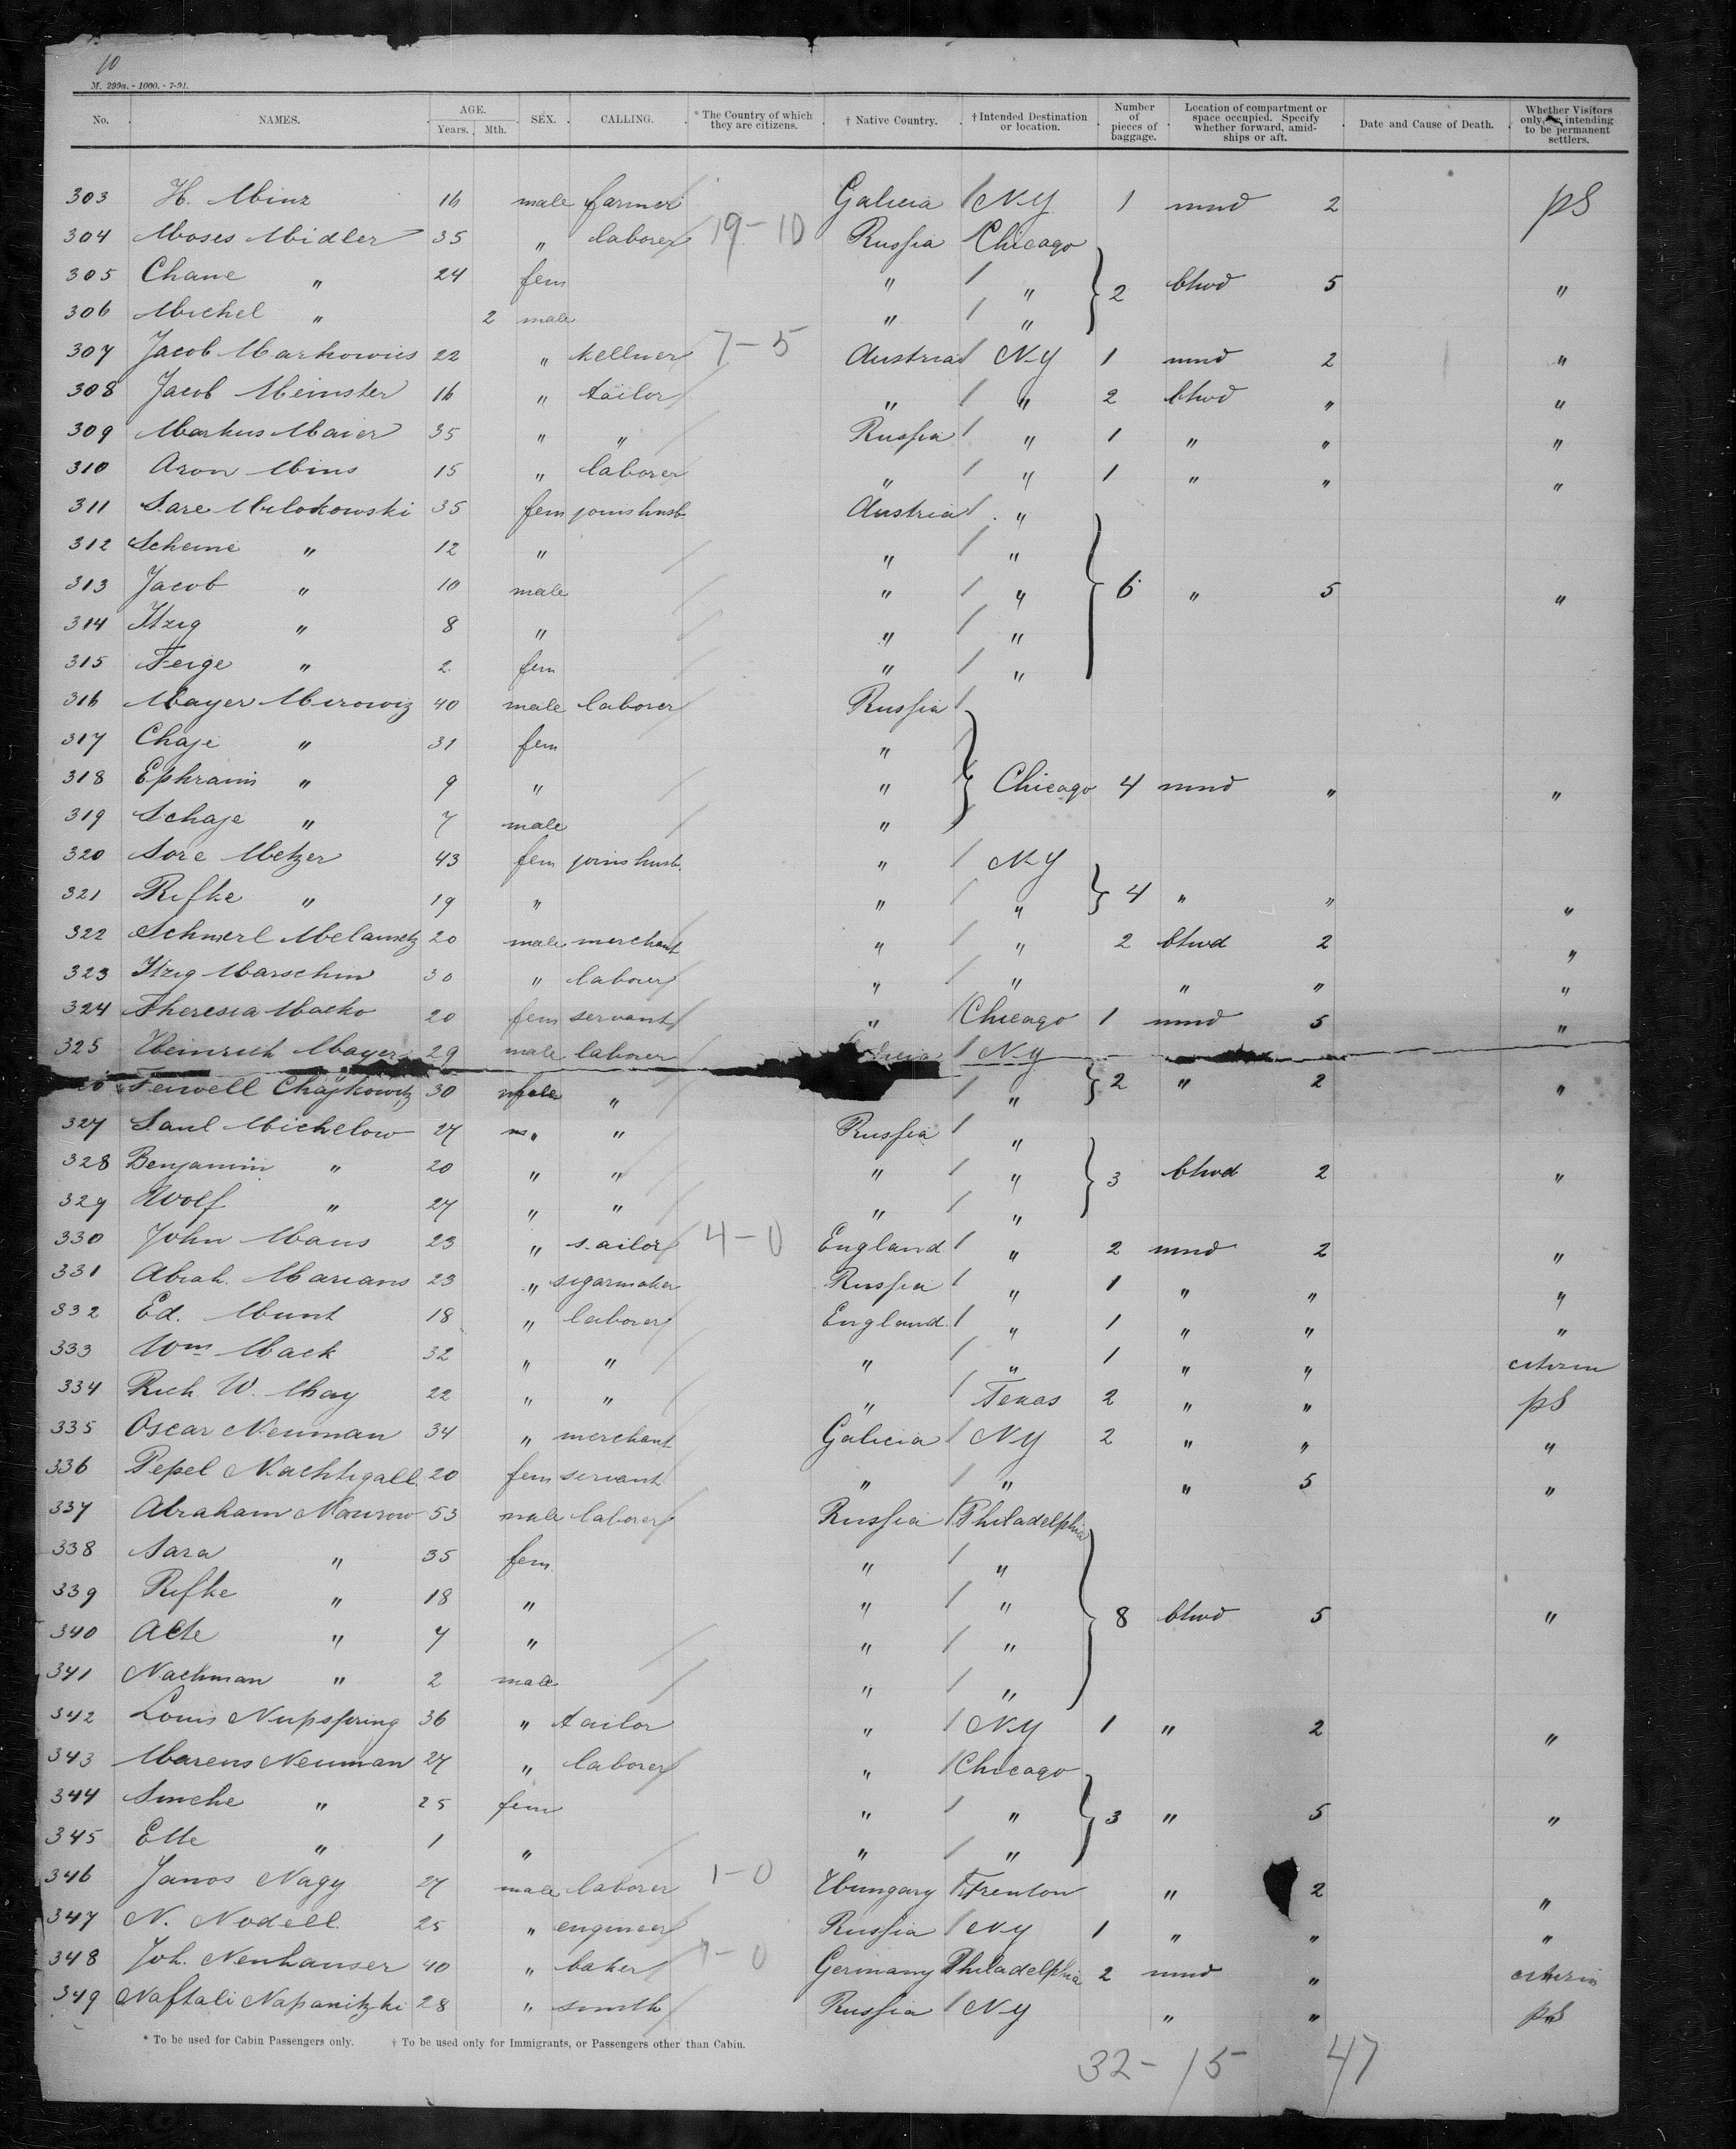 10
M. 299a. - 1000. - 7-91.
No. NAMES. AGE. Years. Mth. SEX. CALLING. * The Country of which they are citizens. † Native Country. † Intended Destination or location. Number of pieces of baggage. Location of compartment or space occupied. Specify whether forward, amidships or aft. Date and Cause of Death. Whether Visitors only, or intending to be permanent settlers.
303 H. Minz 16 male farmer Galicia / NY 1 mnd 2 pS
304 Moses Midler 35 " laborer 19-10 Russia / Chicago
305 Chane " 24 fem " / " } 2 btwd 5 "
306 Michel " 2 male " / "
307 Jacob Markowics 22 " kellner 7-5 Austria / NY 1 mnd 2 "
308 Jacob Meinster 16 " tailor " / " 2 btwd " "
309 Markus Maier 35 " " Russia / " 1 " " "
310 Aron Mins 15 " laborer " / " 1 " " "
311 Sare Milokowski 35 fem joins husb. Austria / "
312 Scheine " 12 " " / "
313 Jacob " 10 male " / " } 6 " 5 "
314 Itzig " 8 " " / "
315 Feige " 2 fem " / "
316 Mayer Mirowiz 40 male laborer Russia /
317 Chaje " 31 fem " /
318 Ephraim " 9 " " } Chicago 4 mnd " "
319 Schaje " 7 male "
320 Sore Metzer 43 fem joins husb. " / NY
321 Rifke " 19 " " / " } 4 " " "
322 Schmerl 20 male merchant " / " 2 btwd 2 "
323 Itzig Marschin 30 " laborer " / " " " "
324 Theresia Macko 20 fem servant " / Chicago 1 mnd 5 "
325 Heinrich Mayer 29 male laborer / NY
Feiwell Chajkowitz 30 male " / " } 2 " 2 "
327 Saul Michelow 27 " " Russia / "
328 Benjamin " 20 " " " / " } 3 btwd 2 "
329 Wolf " 27 " " " / "
330 John Maus 23 " sailor 4-0 England / " 2 mnd 2 "
331 Abrah. Marians 23 " sigarmaker Russia / " 1 " " "
332 Ed. Munt 18 " laborer England / " 1 " " "
333 Wm Mack 32 " " " / " 1 " " citizen
334 Rich. W. May 22 " " " / Texas 2 " " pS
335 Oscar Neuman 34 " merchant Galicia / NY 2 " " "
336 Pepel Nachtigall 20 fem servant " / " " 5 "
337 Abraham Naurow 53 male laborer Russia / Philadelphia
338 Sara " 35 fem. " / "
339 Rifke " 18 " " / " } 8 btwd 5 "
340 " 7 " " / "
341 Nachman " 2 male " / "
342 Louis Nupspring 36 " tailor " / NY 1 " 2 "
343 Marcus Neuman 27 " laborer " / Chicago
344 Simche " 25 fem " / " } 3 " 5 "
345 Ette " 1 " " / "
346 Janos Nagy 27 male laborer 1-0 Hungary / Trenton " 2 "
347 N. Nodell 25 " engineer Russia / NY 1 " " "
348 Joh. Neuhauser 40 " baker 1-0 Germany Philadelphia 2 mnd " citizen
349 Naftali Napanitzki 28 " smith Russia / NY " " pS
* To be used for Cabin Passengers only. † To be used only for Immigrants, or Passengers other than Cabin.
32-15 47